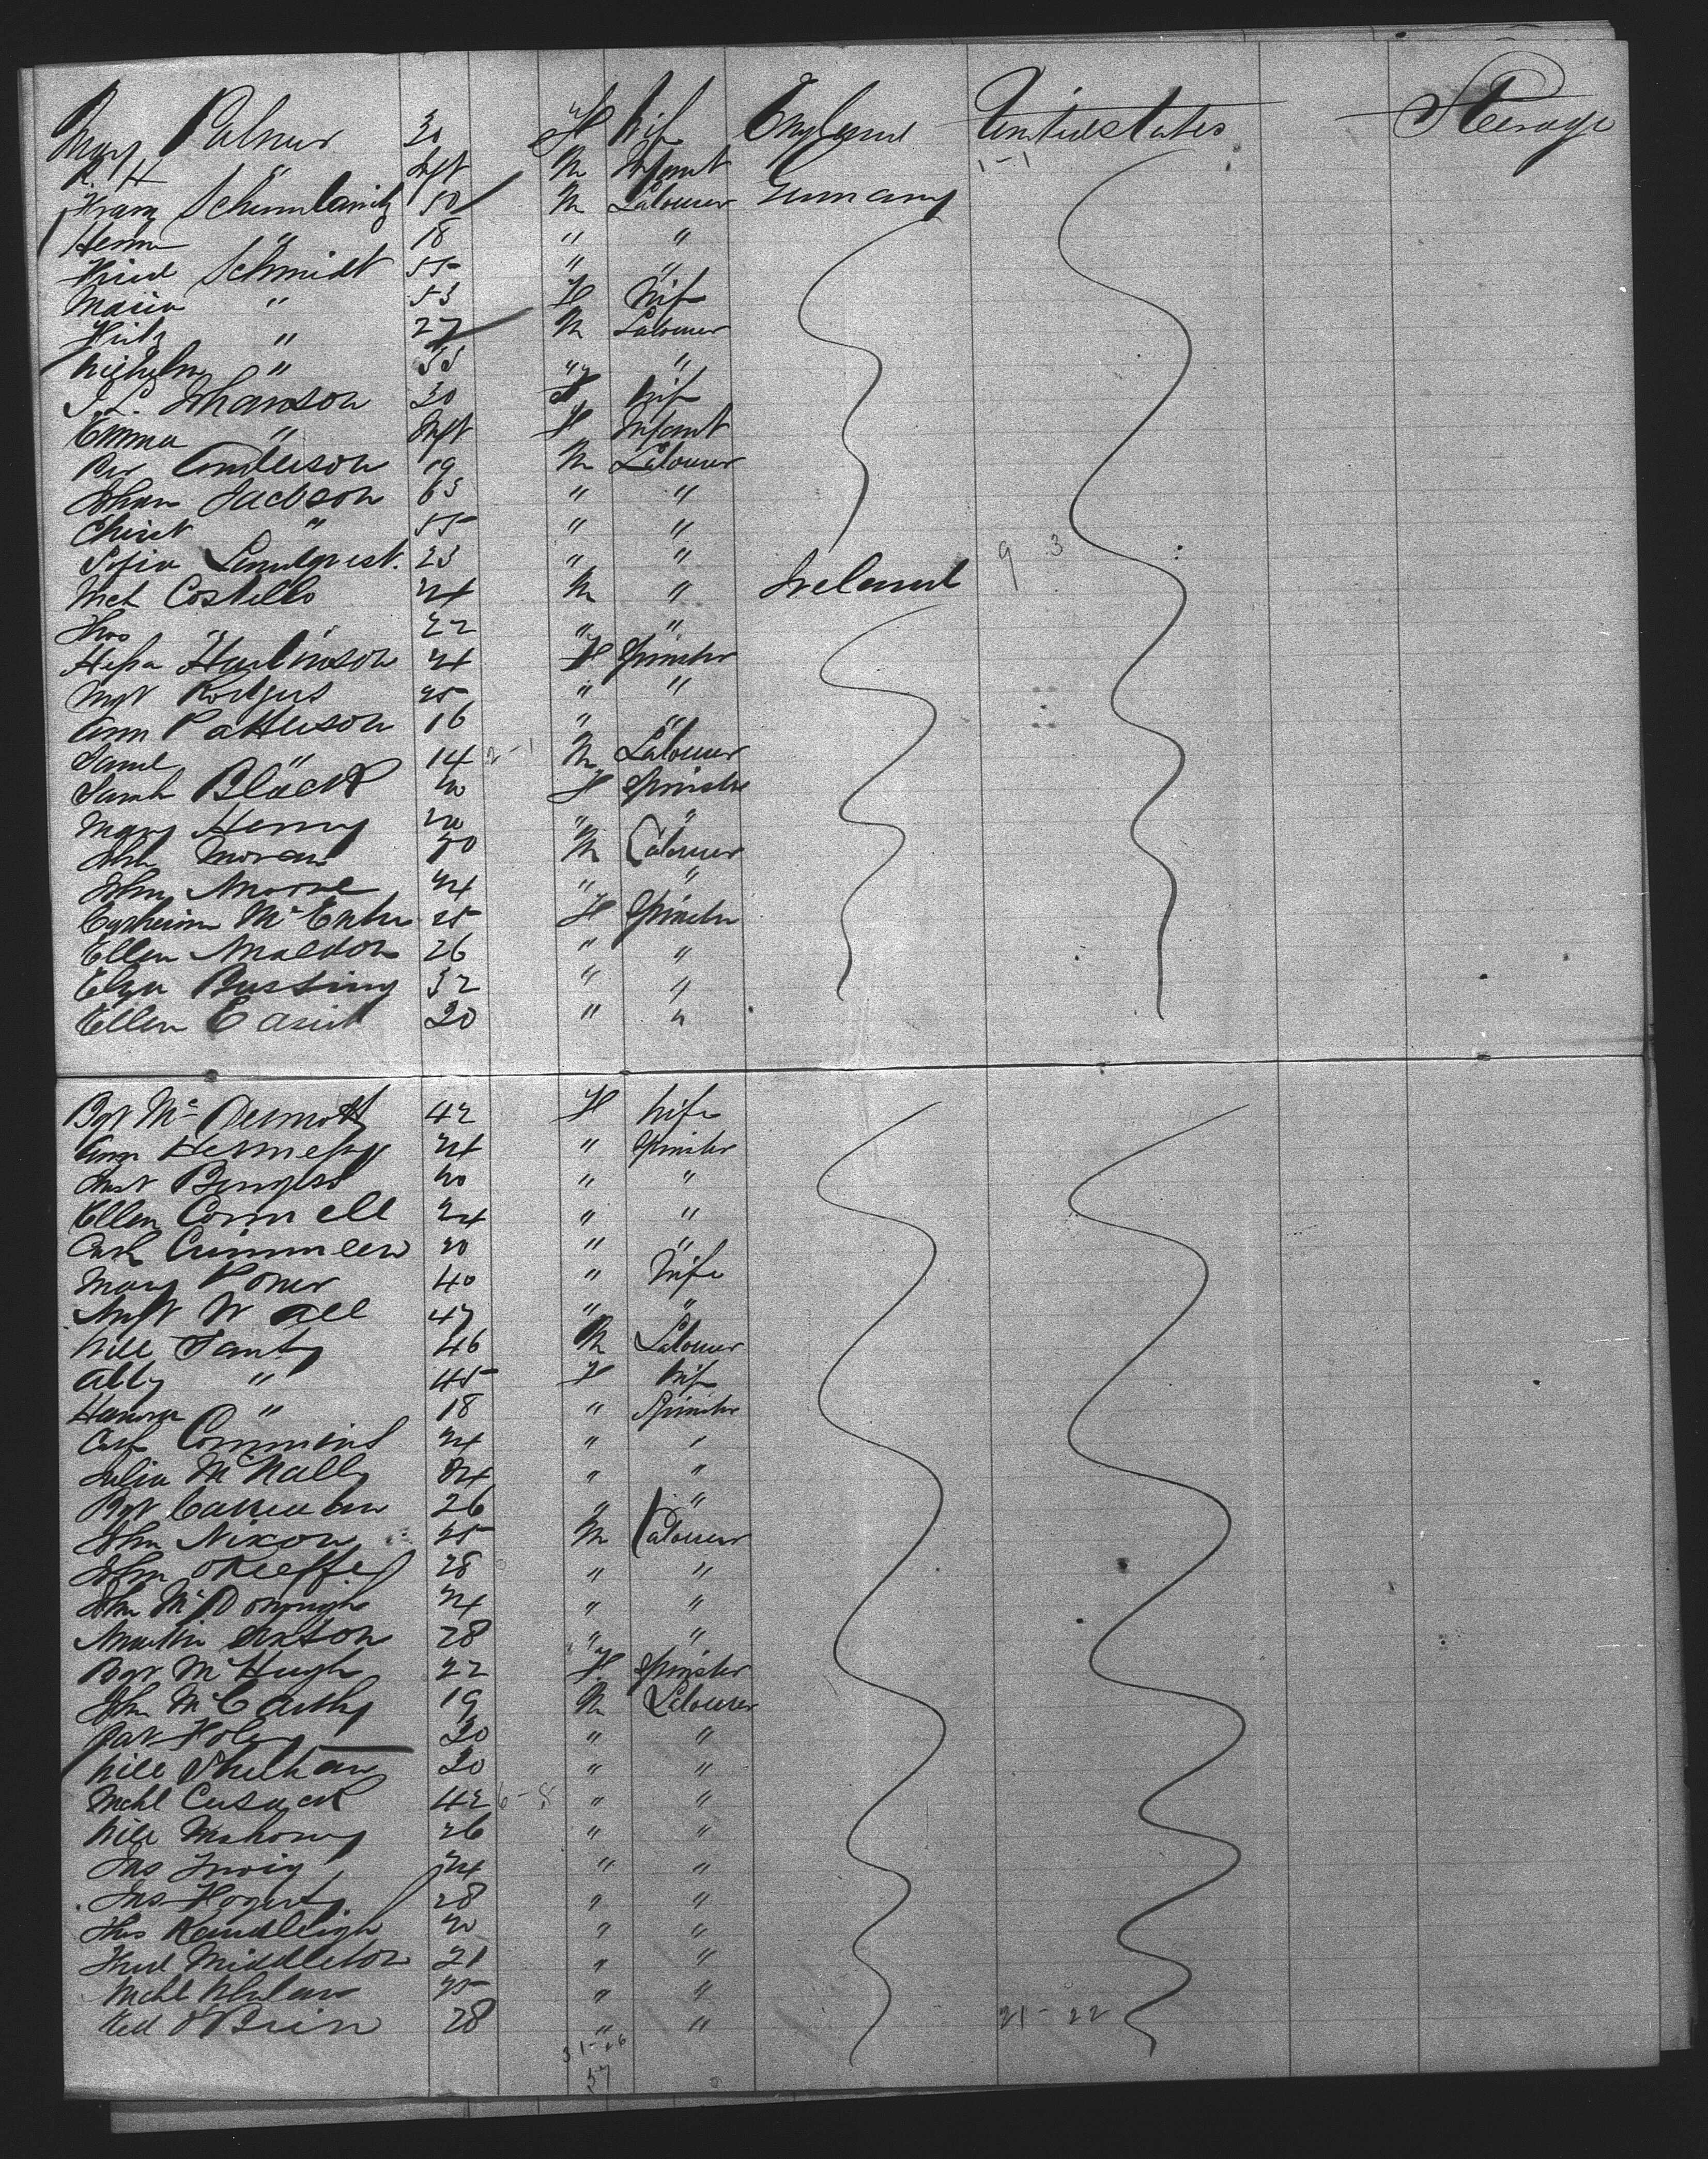 Mary Palmer 30 F Wife England United States Steerage
R. H " Inft M Infant 1-1
Franz 50 M Labourer Germany
Herm " 18 " "
Fried Schmidt 55 " "
Maria " 53 F Wife
Fritz " 27 M Labourer
Wilhelm " 33 " "
J. L. Johanson 30 F Wife
Emma " Inft F Infant
Per Anderson 19 M Labourer
Johan Jacobson 63 " "
Christ " 55 " "
Sofia Lundqvist. 23 " " 9 3
Mch Costello 24 M " Ireland
Thos " 22 " "
Hessa 24 F Spinster
Mgt Rodgers 25 " "
Ann Patterson 16 " "
Saml " 14 2-1 M Labourer
Sarah Black 20 F Spinster
Mary Henry 20 " "
John Moran 40 M Labourer
John Moore 24 " "
Catherine McEntee 25 F Spinster
Ellen Muldon 26 " "
Eliza 32 " "
Ellen 20 " "
Bgt McDermott 42 F Wife
Ann Hennessy 24 " Spinster
Burgess 20 " "
Ellen Connell 24 " "
Cath Cummeen 20 " "
Mary Power 40 " Wife
Wall 47 " "
Will 46 M Labourer
Abby " 45 F Wife
Hanora " 18 " Spinster
Cath Commins 24 " "
Julia McNally 24 " "
Bgt 26 " "
John Nixon 25 M Labourer
John OKeeffe 28 " "
John McDonough 24 " "
Martin Sexton 28 " "
Bgt McHugh 22 F Spinster
John McCarthy 19 M Labourer
Pat Foley 20 " "
Will 20 " "
Mchl Cusack 42 6-8 " "
Will Mahony 26 " "
Jas 24 " "
Jas Hogerty 28 " "
Thos 20 " "
Fred Middleton 21 " "
Mchl Whelan 25 " "
OBrien 28 " " 21-22
31-26
57